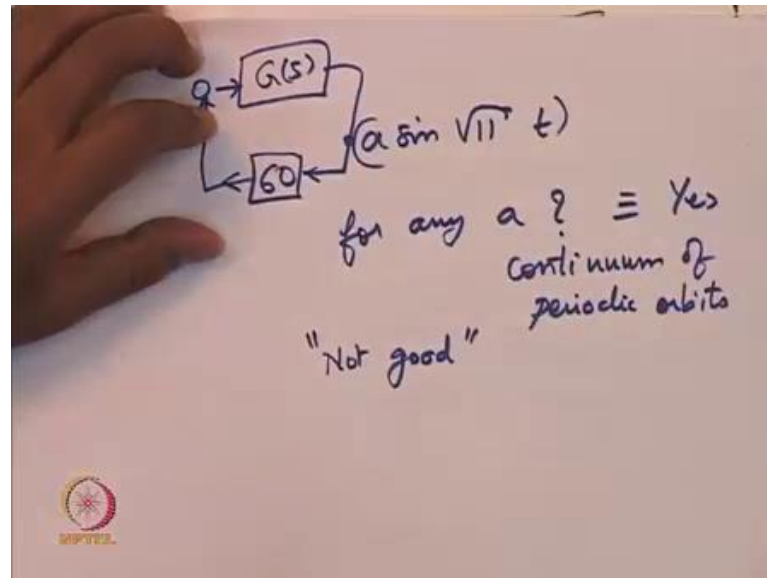 G(s)
(a sin √11 t)
60
for any a ? ≡ Yes
continuum of
periodic orbits
"Not good"
NPTEL